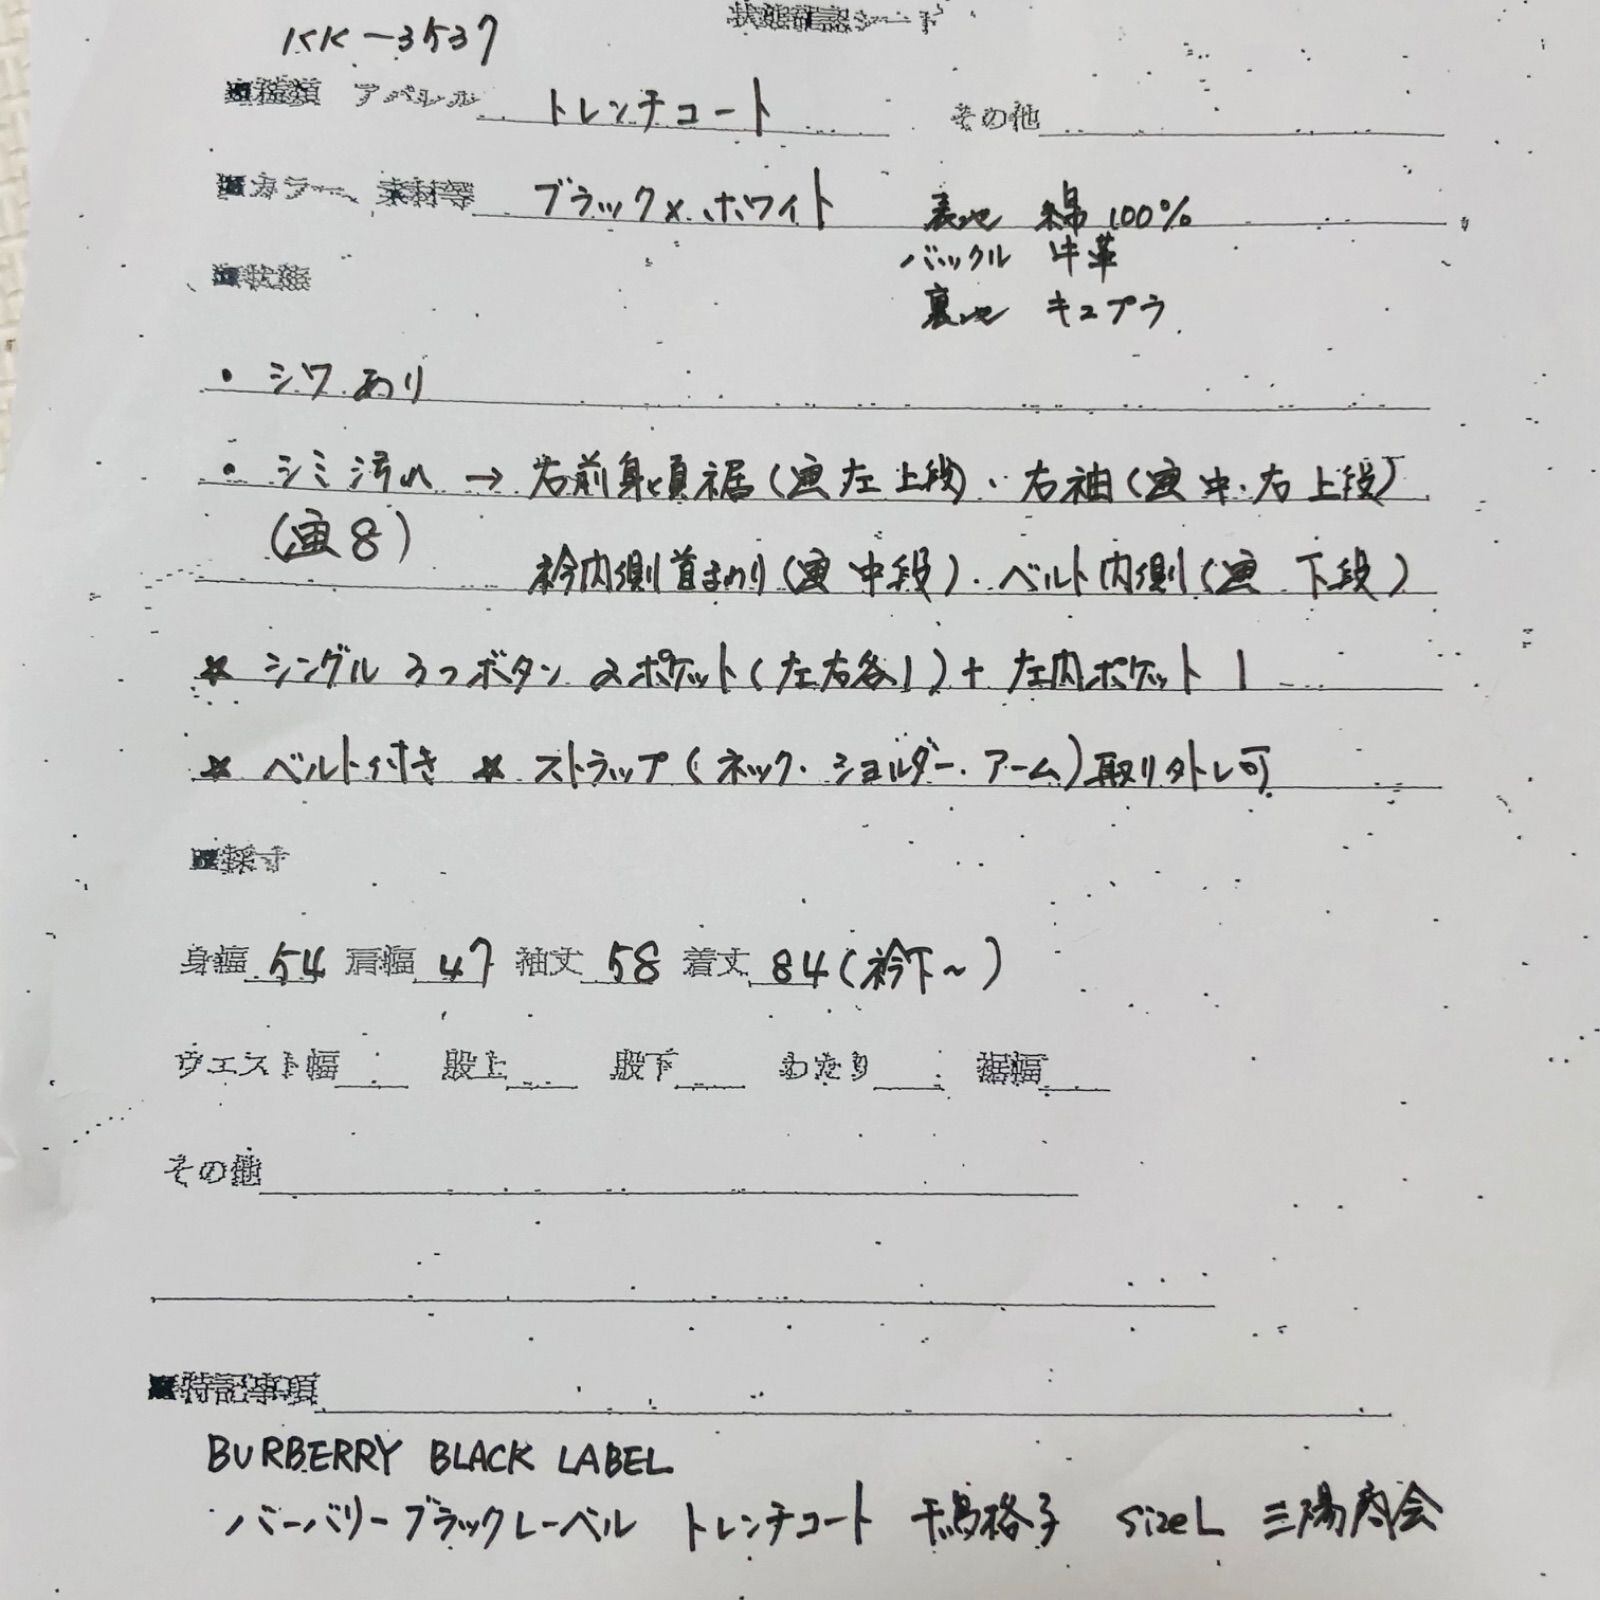 状態確認シート
KK-3537
■種類 アパレル トレンチコート その他
■カラー、素材等 ブラック×ホワイト 表地 綿100%
バックル 牛革
■状態
裏地 キュプラ
・シワあり
・シミ汚れ → 右前身頃裾(画左上段)・右袖(画中・右上段)
(画8)
衿内側首まわり(画中段)・ベルト内側(画 下段)
★ シングル 3つボタン 2ポケット(左右各1)+ 左内ポケット 1
★ ベルト付き ★ ストラップ(ネック・ショルダー・アーム)取り外し可
■採寸
身幅 54 肩幅 47 袖丈 58 着丈 84(衿下~)
ウエスト幅 股上 股下 わたり 裾幅
その他
■特記事項
BURBERRY BLACK LABEL
バーバリーブラックレーベル トレンチコート 千鳥格子 sizeL 三陽商会